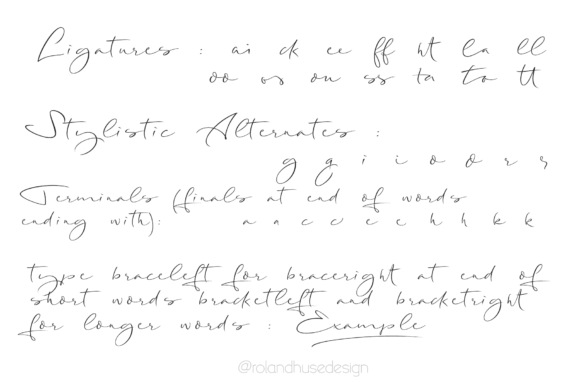 Ligatures : ai ck ee ff ht la ll
oo os ou ss ta to tt
Stylistic Alternates :
g g i i o o r r
Terminals (finals at end of words
ending with): a a c c e e h h k k
type braceleft for braceright at end of
short words bracketleft and bracketright
for longer words : Example
@rolandhusedesign